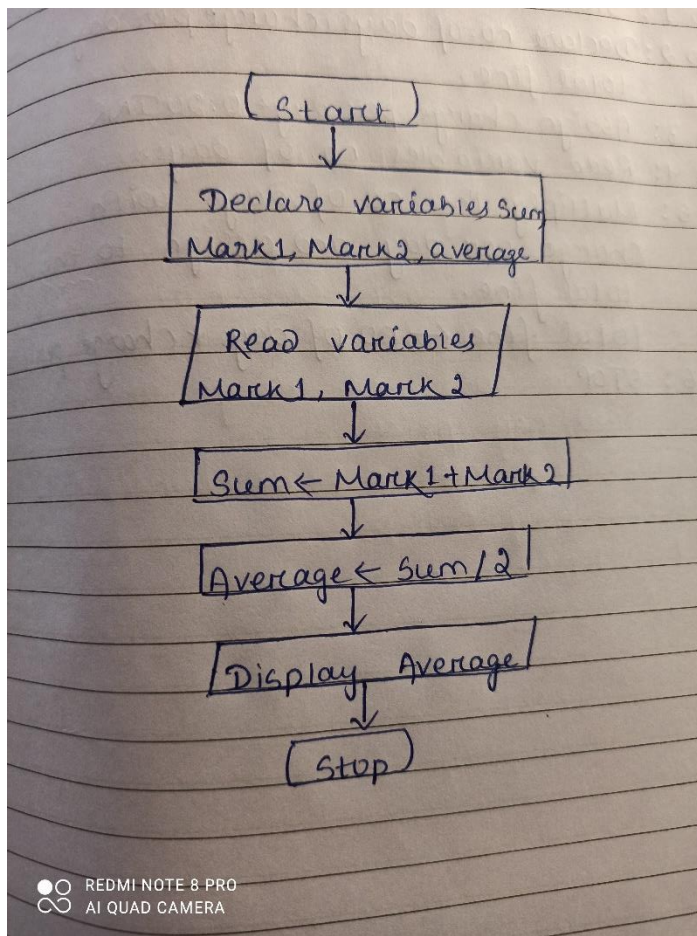 Start
Declare variables Sum,
Mark1, Mark2, average
Read variables
Mark1, Mark 2
Sum ← Mark1+Mark2
Average ← Sum/2
Display Average
Stop
REDMI NOTE 8 PRO
AI QUAD CAMERA